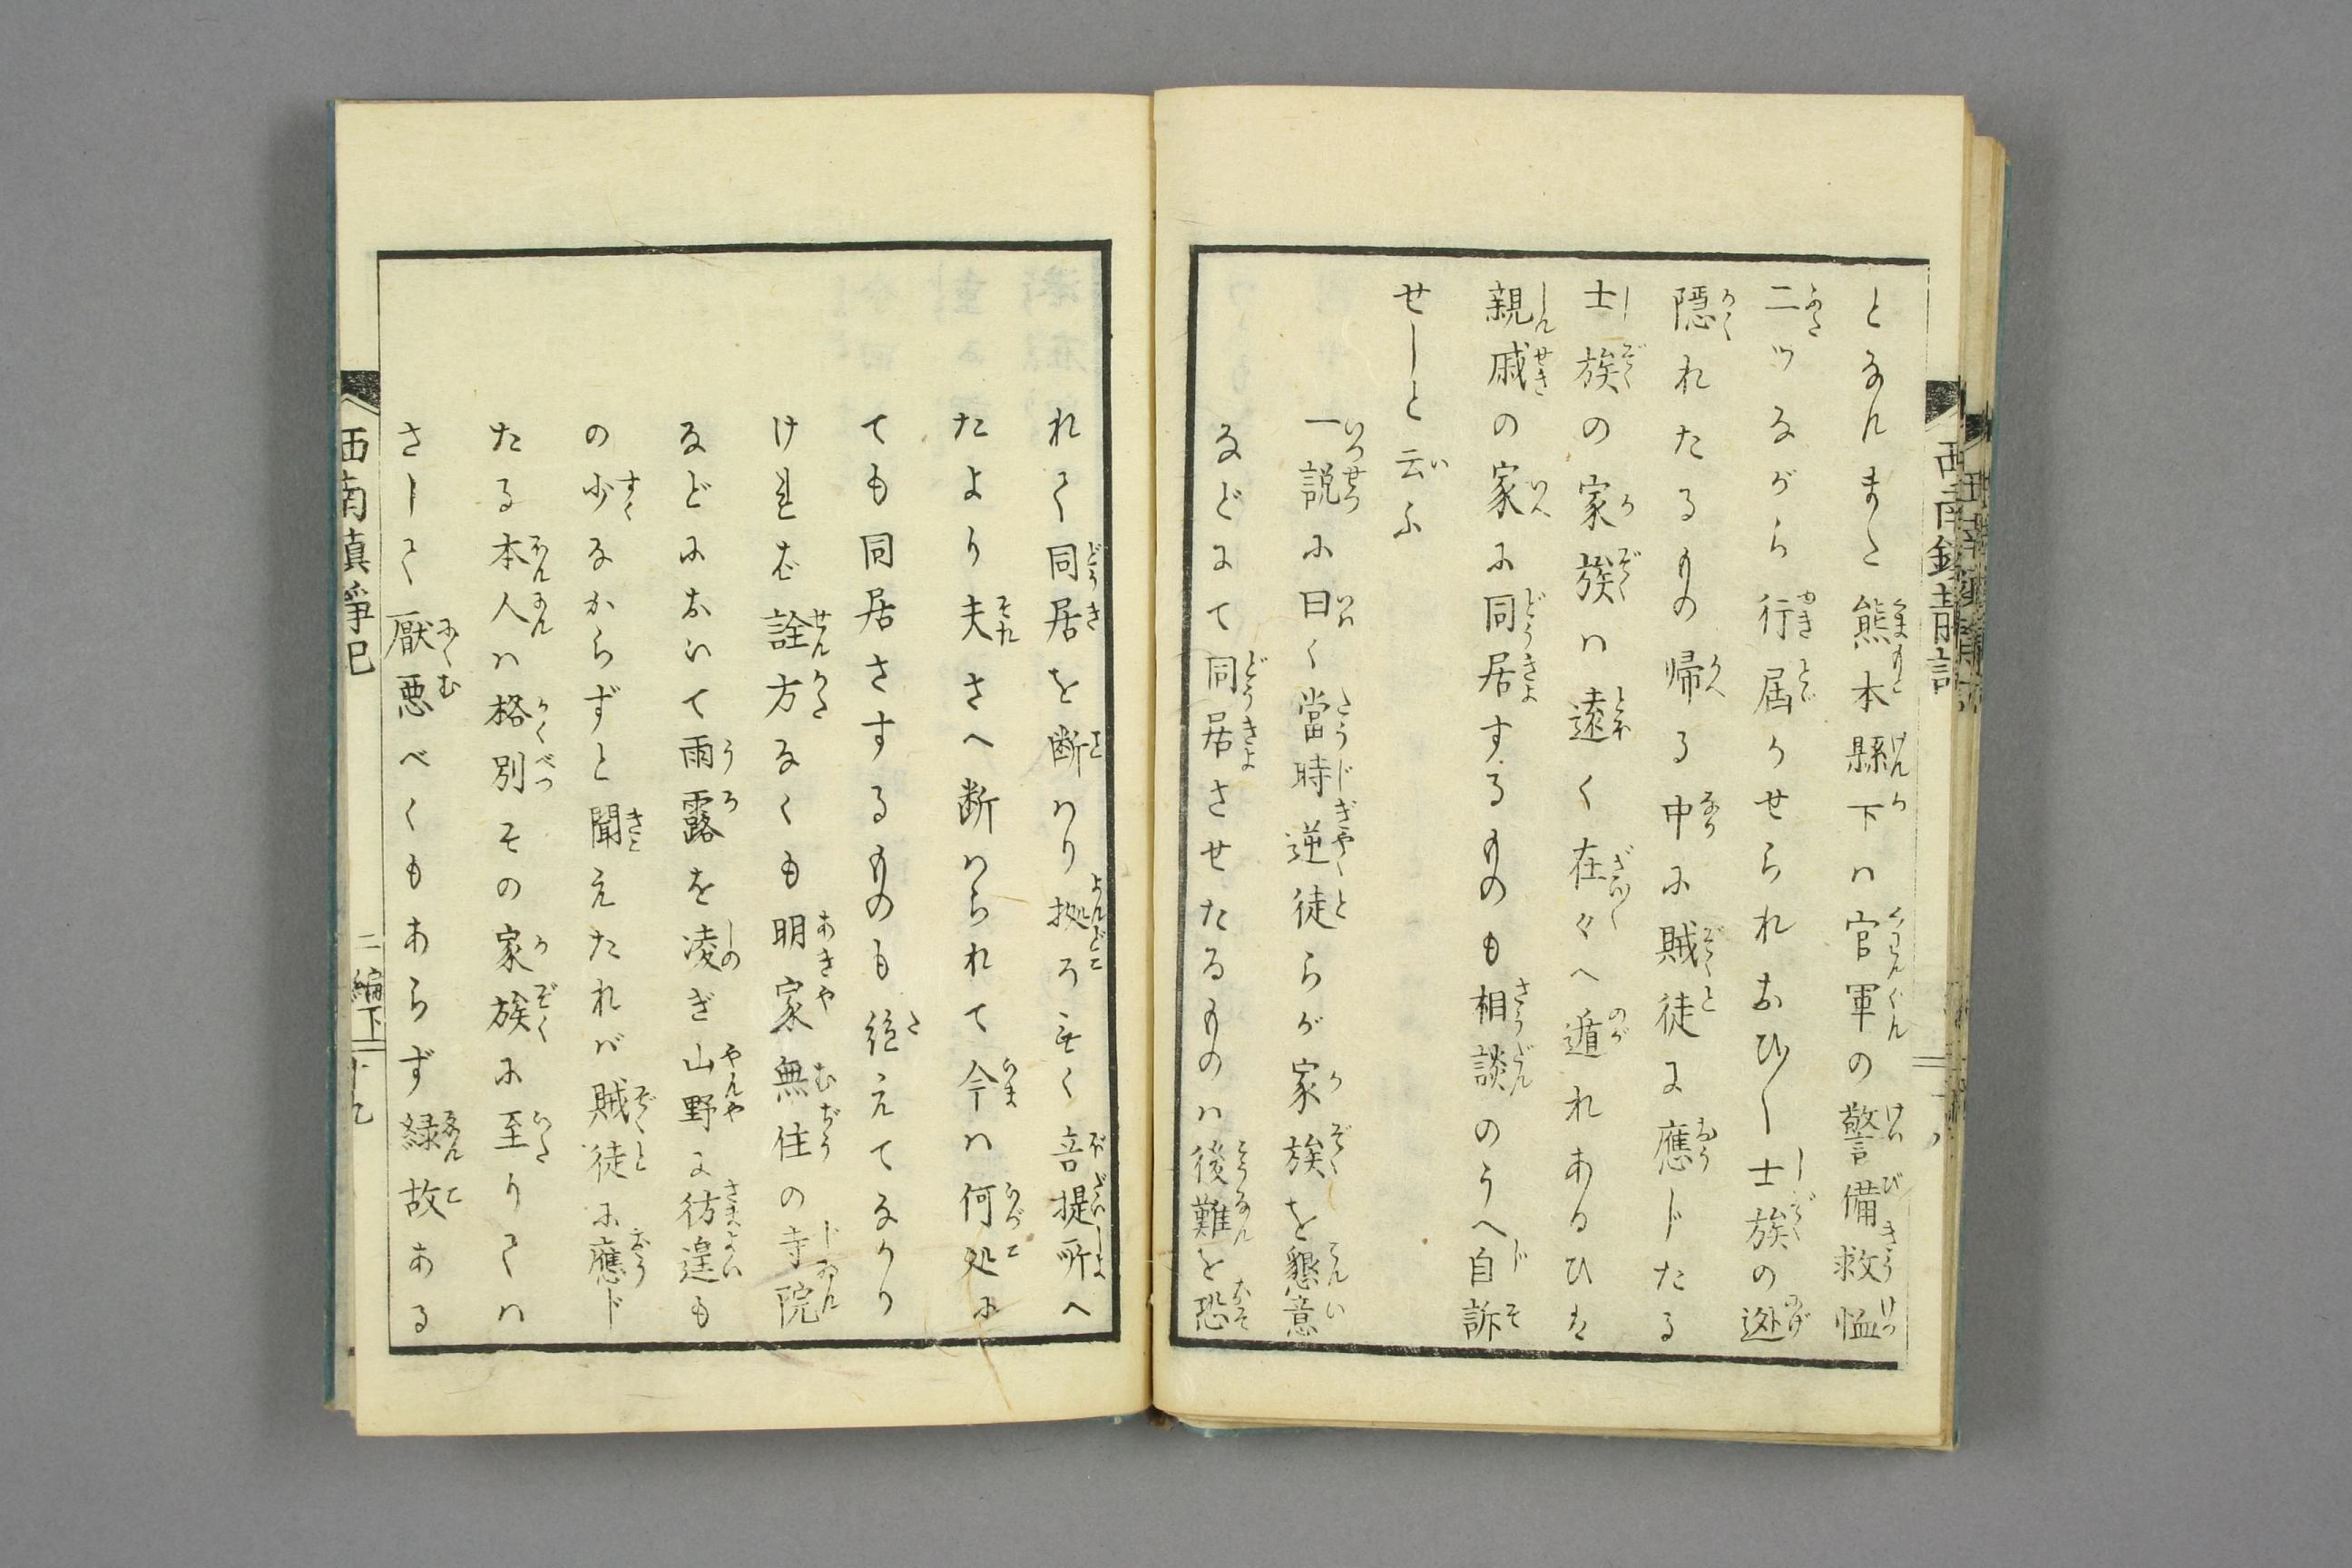 となんまた熊本縣下ハ官軍の警備救恤
二ツながら行届かせられおひ〳〵士族の迯
隠れたるもの帰る中に賊徒に應じたる
士族の家族ハ遠く在々へ遁れあるひは
親戚の家に同居するものも相談のうへ自訴
せしと云ふ
一説に曰く當時逆徒らが家族を懇意
などにて同居させたるものハ後難を恐
れて同居を断ハり拠ろなく菩提所へ
たより夫さへ断ハられて今ハ何処に
ても同居さするものも絶えてなかり
ければ詮方なくも明家無住の寺院
などにおいて雨露を凌ぎ山野に彷徨も
の少なからずと聞えたれバ賊徒に應じ
たる本人ハ格別その家族に至りてハ
さして厭悪べくもあらず縁故ある
西南真爭記
二編下
十九